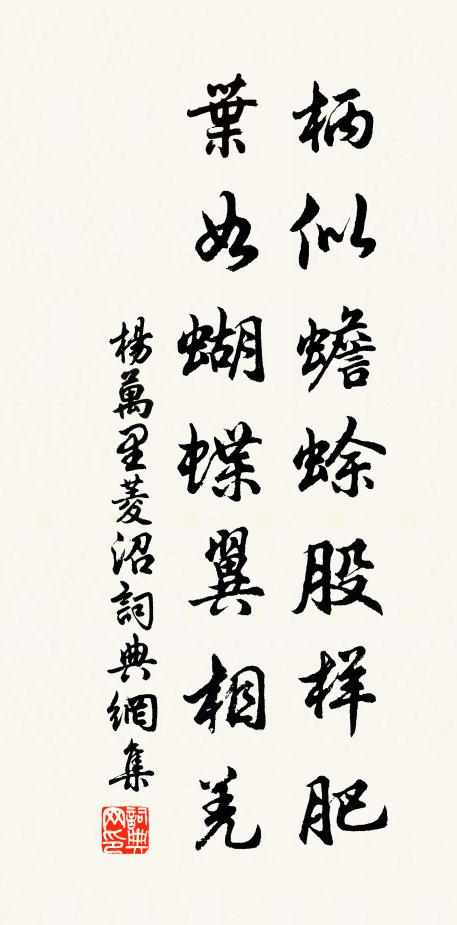 柄似蟾蜍股样肥
葉如蝴蝶翼相差
楊萬里菱沼詞典網集
詞典网印